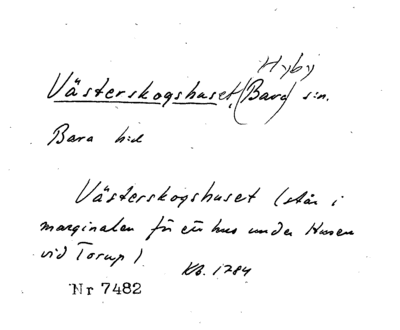 Hyby
Västerskogshuset, (Bara) s:n.
Bara h:d
Västerskogshuset (står i
marginalen för ett hus under Husen
vid Torup)
Kb. 1784
Nr 7482